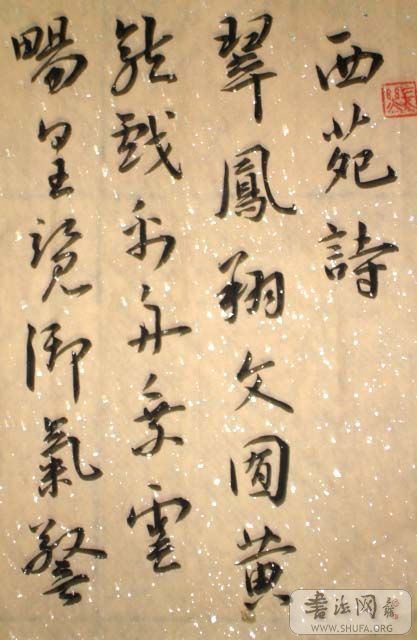 西苑詩
翠鳳翔文囿黄
龍戲彩舟乗雲
暢皇覽御氣警
書法网
WWW.SHUFA.ORG